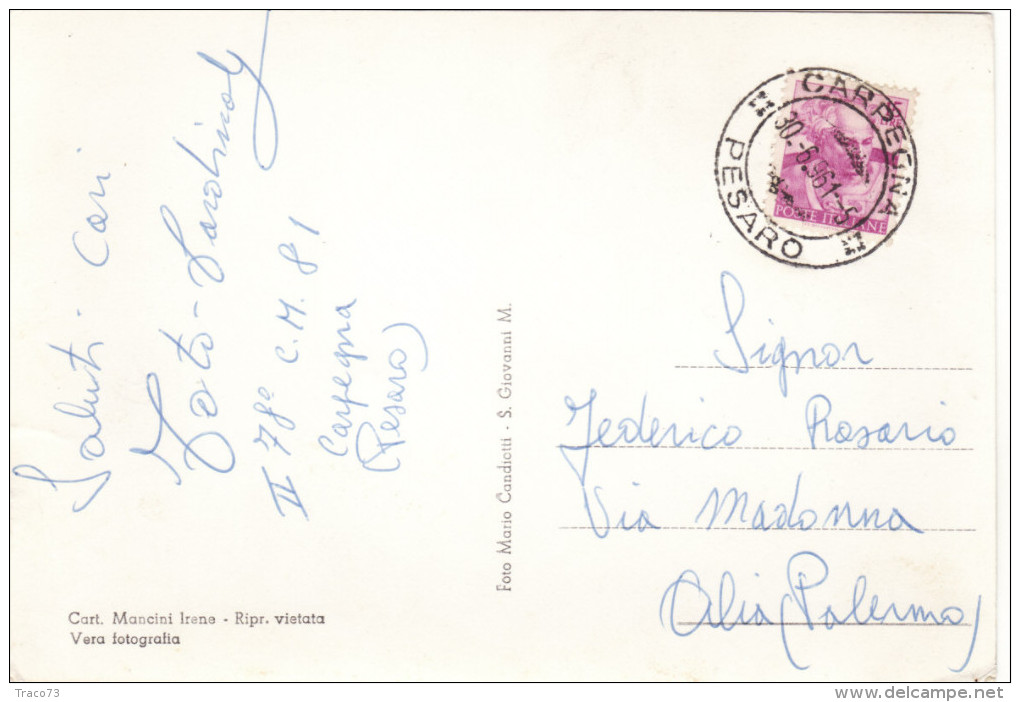 Saluti Cari
Totò -
II 78° C.M. 81
Carpegna
(Pesaro)
Foto Mario Candiotti - S. Giovanni M.
CARPEGNA
30.-6.961-5
PESARO
POSTE ITALIANE
Signor
Federico Rosario
Via Madonna
Alia (Palermo)
Cart. Mancini Irene - Ripr. vietata
Vera fotografia
Traco73
www.delcampe.net